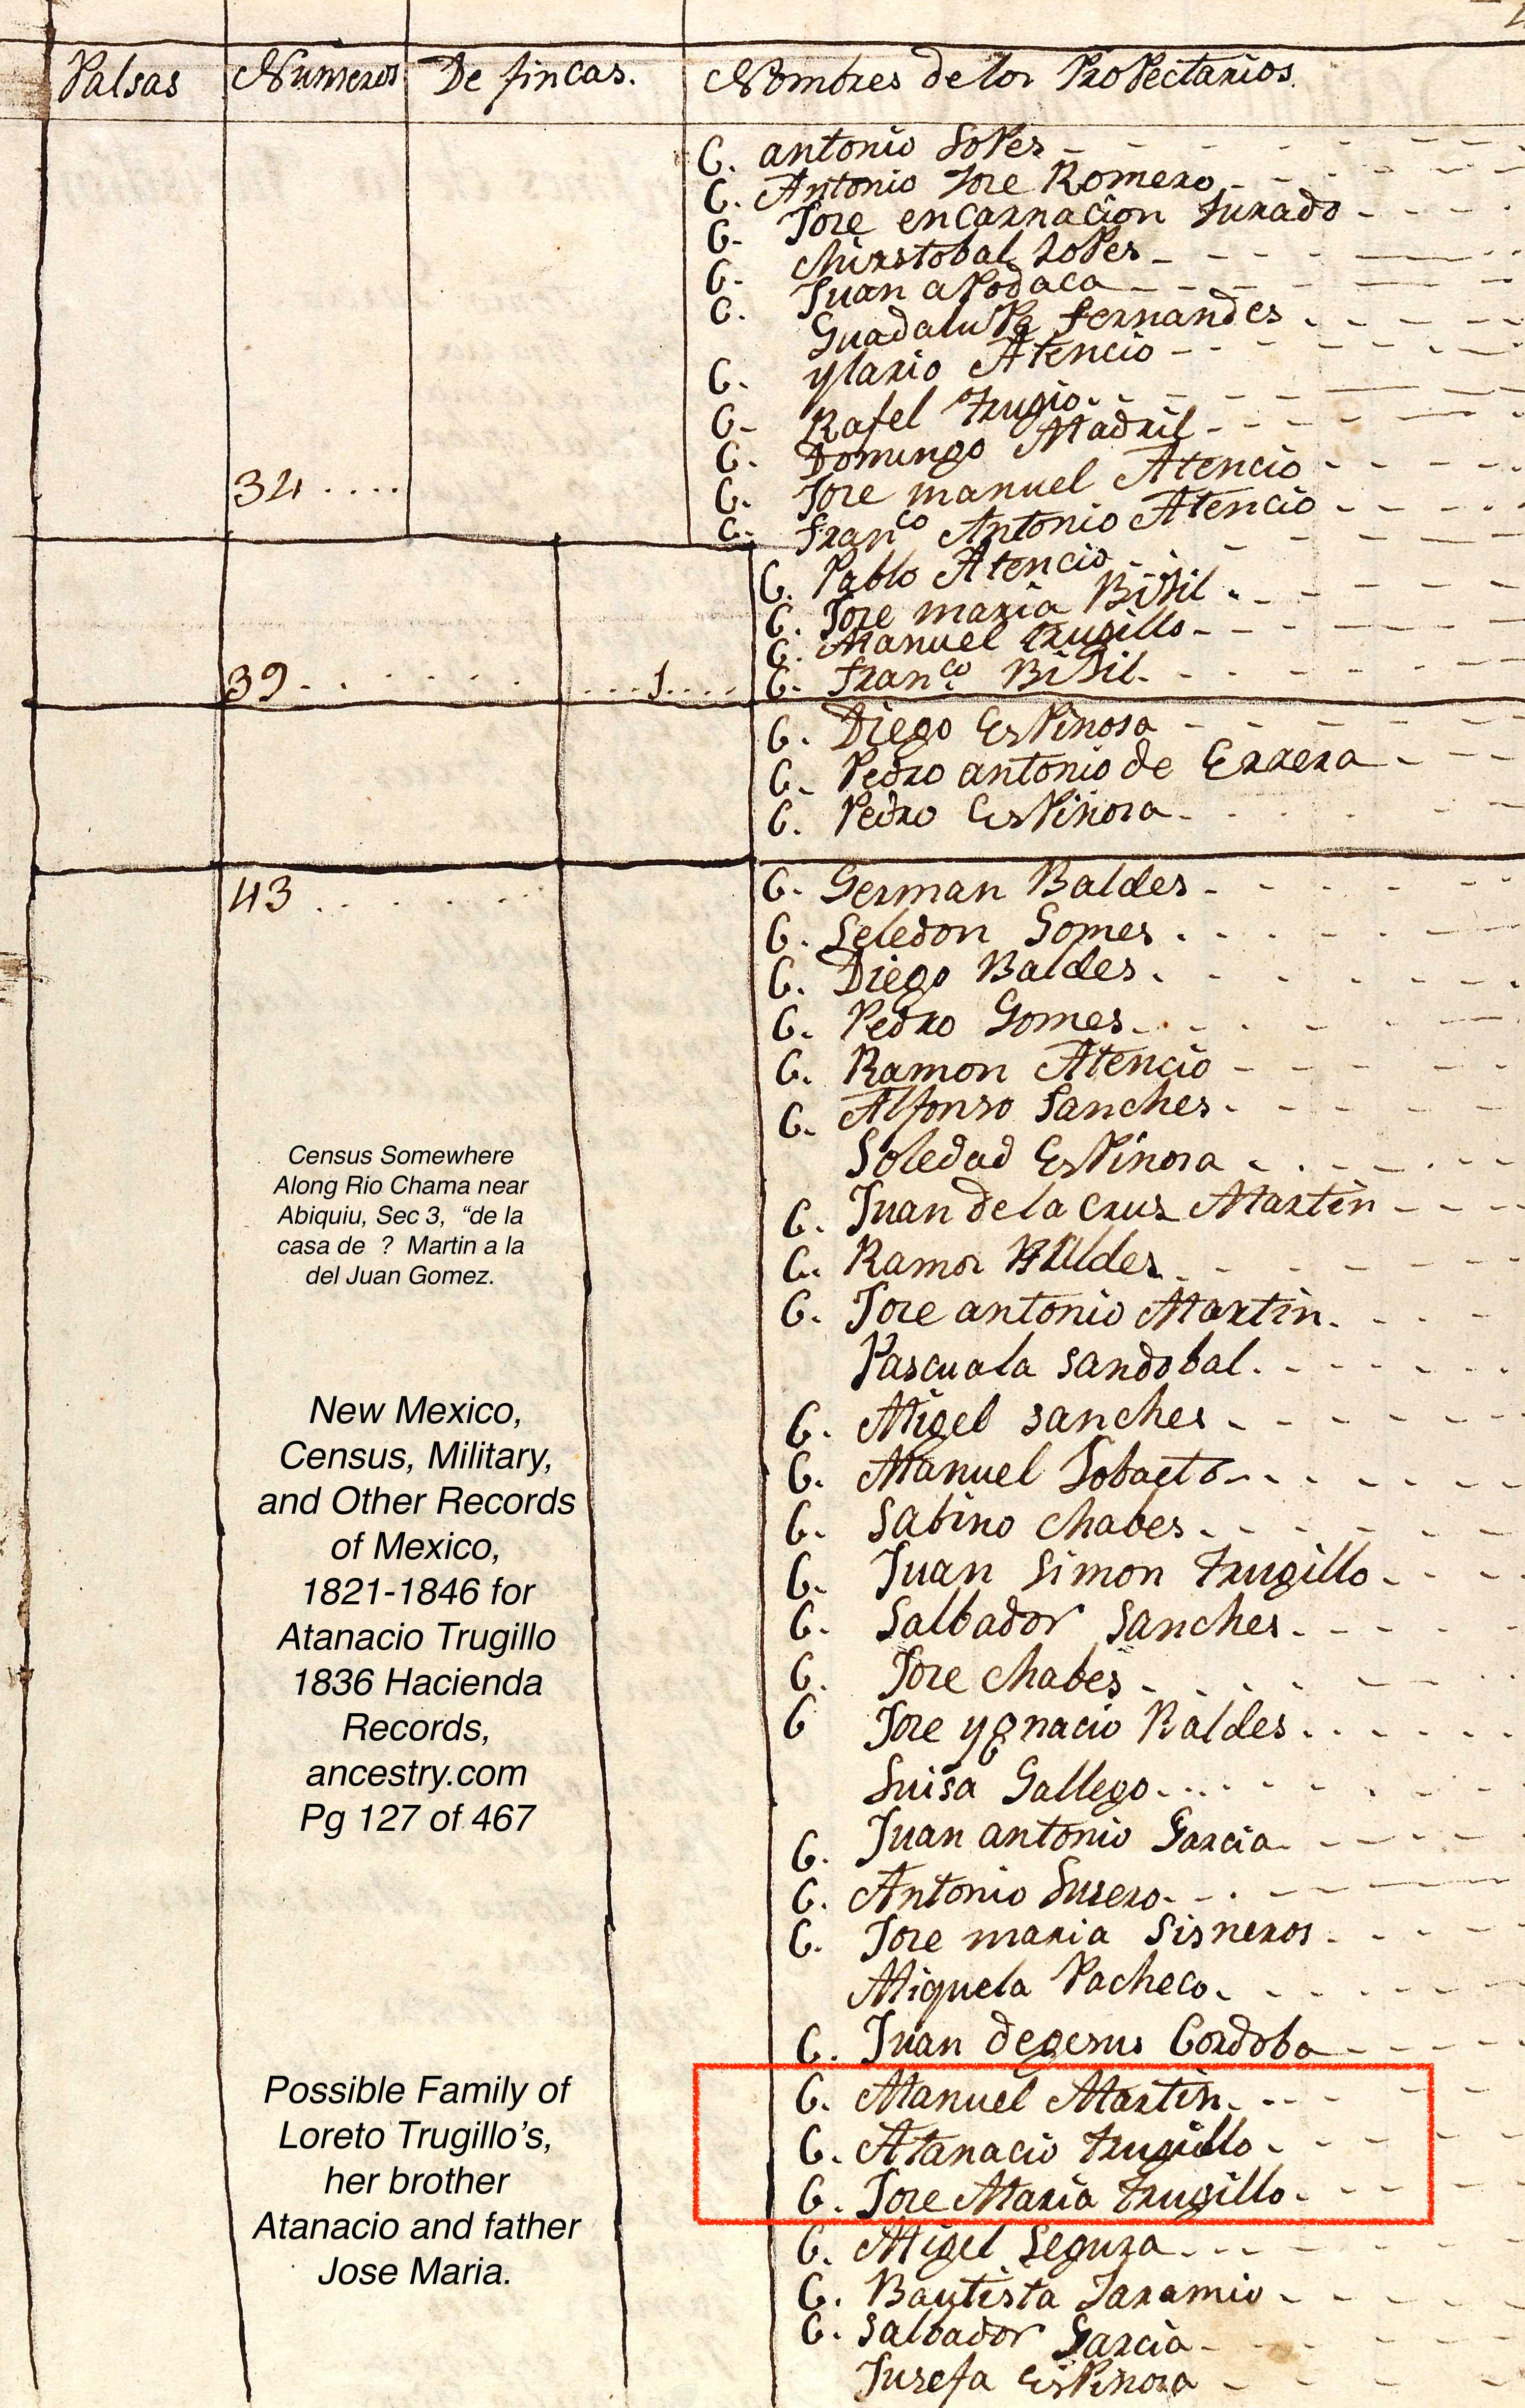 Palsas Numeros De fincas. Nombres de los Propectarios.
C. antonio Lopes
C. Antonio Jose Romero
C. Jose encarnacion Jurado
C. Chirstobal Lopes
C. Juan apodaca
Guadalupe fernandes
C. ylario Atencio
C. Rafel Trugio
C. Domingo Madril
34 .... C. Jose manuel Atencio
C. franco Antonio Atencio
C. Pablo Atencio
C. Jose maria Bijil
C. Manuel trugillo
39 1 C. franco Bijil
C. Diego Espinosa
C. Pedro antonio de Errera
C. Pedro Espinosa
43 C. German Baldes
C. Seledon Gomes
C. Diego Baldes
C. Pedro Gomes
C. Ramon Atencio
C. Alfonso Sanches
Soledad Espinosa
C. Juan de la Crus Martin
C. Ramon Baldes
C. Jose antonio Martin
Pascuala Sandobal
C. Migel Sanches
C. Manuel Lobacto
C. Sabino Chabes
C. Juan Simon trugillo
C. Salbador Sanches
C. Jose Chabes
C Jose ygnacio Baldes
Luisa Gallego
C. Juan antonio Garcia
C. Antonio Lusero
C. Jose maria Sisneros
Miquela Pacheco
C. Juan degesus Cordoba
C. Manuel Martin
C. Atanacio trugillo
C. Jose Maria trugillo
C. Migel Segura
C. Bautista Jaramio
C. Salbador Garcia
Jusefa Espinosa
Census Somewhere
Along Rio Chama near
Abiquiu, Sec 3, “de la
casa de ? Martin a la
del Juan Gomez.
New Mexico,
Census, Military,
and Other Records
of Mexico,
1821-1846 for
Atanacio Trugillo
1836 Hacienda
Records,
ancestry.com
Pg 127 of 467
Possible Family of
Loreto Trugillo’s,
her brother
Atanacio and father
Jose Maria.